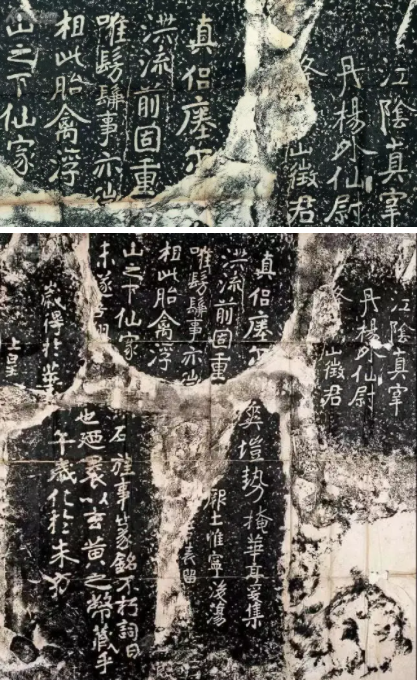 江陰真宰
丹楊外仙尉
山徵君
真侶瘞尔
洪流前固重
唯髣髴事亦
相此胎禽浮
山之下仙家
江陰真宰
丹楊外仙尉
山徵君
真侶瘞尔
洪流前固重
唯髣髴事亦
相此胎禽浮
山之下仙家
未遂
歲得於華
上皇
爽塏勢掩華亭爰集
厥土惟寧後蕩
石旌事篆銘不朽詞曰
也廼裹以玄黃之幣藏乎
午歲化於朱方